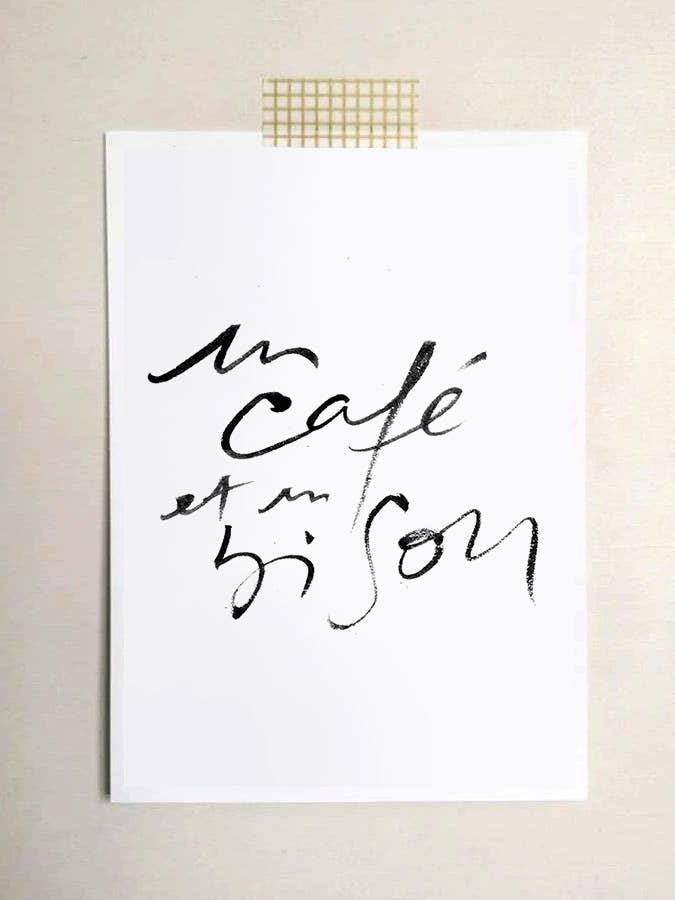 un
café
et un
bisou